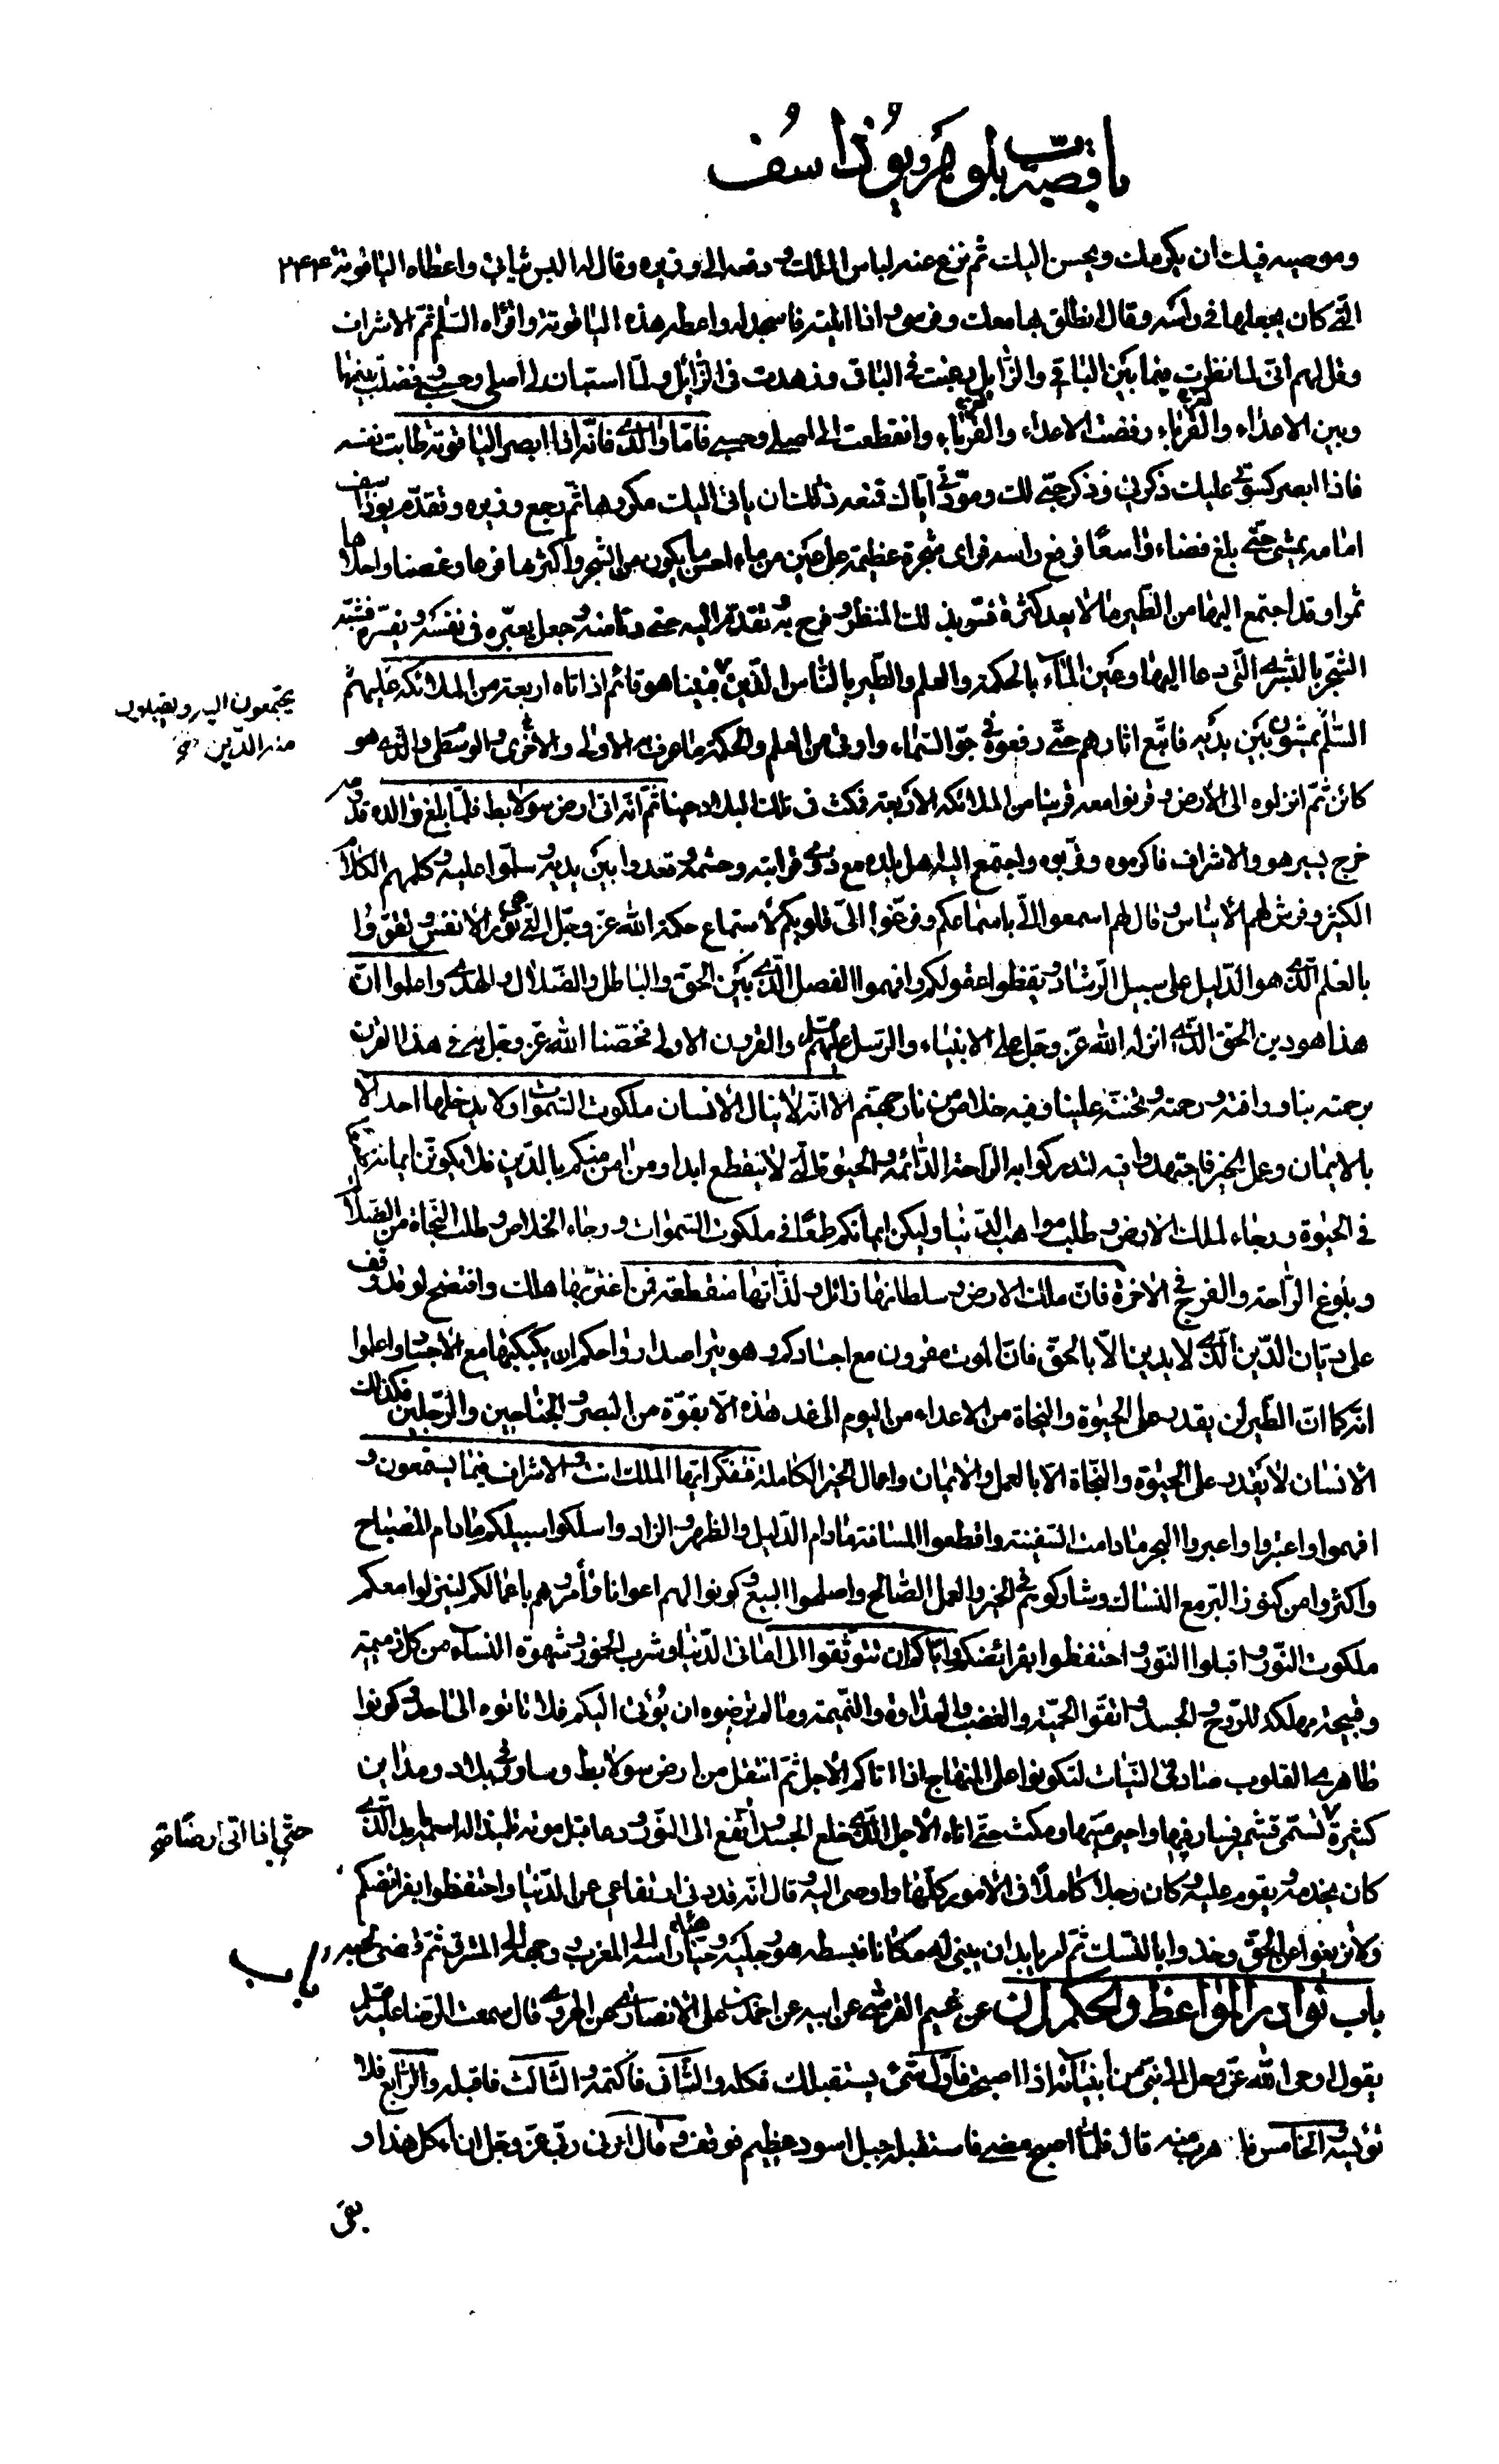 باقی قصّة بلوهر ویوذاسف
وموصیه فیك ان یكرمك ویحسن الیك ثم نزع عنه لباس الملك و دفعه الی وزیره وقال له البس ثیابی واعطاه الیاقوتة ۲۴۴
الّتی كان یجعلها فی راسه وقال انطلق بها معك وفرسی و اذا اتیته فاسجد له واعطه هذه الیاقوتة واقرأه السّلم ثمّ الاشراف
وقل لهم انّی لما نظرت فیما بین الباقی والزّایل رغبت فی الباقی وزهدت فی الزّایل ولمّا استبان لی اصلی وحسبی وفصلت بینهما
وبین الاعداء والقرباء رفضت الاعداء والقرباء وانقطعت الی اصلی وحسبی فامّا والدی فانّه اذا ابصر الیاقوتة طابت نفسه
فاذا ابصر كسوتی علیك ذكرنی وذكر حبّی لك ومودّتی ایّاك فمنعه ذلك ان یاتی الیك مكروها ثمّ رجع وزیره وتقدّم یوذاسف
امامه یمشی حتّی بلغ فضاء واسعًا فرفع راسه فرای شجرة عظیمة علی عین من ماء احسن ما یكون من الشجر واكثرها فرعا وغصنا واحلاها
ثمرا وقد اجتمع الیها من الطّیر ما لا یعد كثرة فسرّ بذلك المنظر و فرح به و تقدّم الیه حتی دنا منه و جعل یعبّره فی نفسه و یفسّره فشبّه
الشّجر بالبشری الّتی دعا الیها وعین المآء بالحكمة والعلم والطّیر بالنّاس الّذین فبینا هو قائم اذ اتاه اربعة من الملائكة علیهم
السّلم یمشون بین یدیه فاتّبع اثارهم حتّی رفعوه فی جوّ السّماء واوتی من العلم والحكمة ما عرف به الاولی والاخری والوسطی والّذی هو
كائن ثمّ انزلوه الی الارض و قرنوا معه قرینا من الملائكة الاربعة فمكث فی تلك البلاد حینا ثمّ انّه اتی ارض سولابط فلمّا بلغ والده قدومه
خرج یسیر هو والاشراف فاكرموه وقرّبوه واجتمع الیه اهل بلده مع ذوی قرابته وحشمه و قعدوا بین یدیه و سلّموا علیه و كلمهم الكلام
الكثیر وفرش لهم الأیناس و قال لهم اسمعوا الیّ باسماعكم وفرّغوا الیّ قلوبكم لاستماع حكمة اللّه عزّ وجلّ الّتی هی نور الانفس و تقوّوا
بالعلم الّذی هو الدّلیل علی سبیل الرّشاد و یقظوا عقولكم وافهموا الفصل الّذی بین الحقّ والباطل والضّلال والهدی واعلموا انّ
هذا هو دین الحقّ الّذی انزله اللّه عزّ وجلّ علی الانبیاء والرّسل علیهم والقرون الاولی فخصّنا اللّه عزّ وجلّ به فی هذا القرن
برحمته بنا ورافته و رحمته و تحنّنه علینا وفیه خلاص من نار جهنّم الا انّه لا ینال الانسان ملكوت السّموات ولا یدخلها احد الّا
بالایمان وعمل الخیر فاجتهدوا فیه لتدركوا به الرّاحة الدّائمة و الحیوة الّتی لا ینقطع ابدا ومن امن منكم بالدّین فلا یكوننّ ایمانه طمعا
فی الحیوة و رجاء لملك الارض و طلب مواهب الدّنیا ولیكن ایمانكم طمعًا فی ملكوت السّموات و رجاء الخلاص و طلب النّجاة من الضّلالة
وبلوغ الرّاحة والفرج فی الآخرة فانّ ملك الارض و سلطانها زائل و لذّاتها منقطعة فمن اغترّ بها هلك وافتضح لو قد وقف
علی دیّان الدّین الّذی لا یدین الّا بالحقّ فانّ الموت مقرون مع اجسادكم و هو یتراصد ارواحكم ان یكبكبها مع الاجساد واعلموا
انّه كما انّ الطّیر لن یقدر علی الحیوة والنجاة من الاعداء من الیوم الی غد هذه الّا بقوّة من البصر و الجناحین والرّجلین فكذلك
الانسان لا یقدر علی الحیوة والنّجاة الّا بالعمل والایمان واعمال الخیر الكاملة فتفكّر ایّها الملك انت و الاشراف فیما یسمعون و
افهموا واعتبروا واعبروا البحر ما دامت السّفینة واقطعوا المسافة ما دام الدّلیل والظهر و الزاد واسلكوا سبیلكم ما دام المصباح
واكثروا من كنوز البرّ مع النساك وشاركوهم فی الخیر والعمل الصّالح واصلحوا التبع و كونوا لهم اعوانا وأمروهم باعمالكم لینزلوا معكم
ملكوت النّور و اقبلوا النّور و احتفظوا بفرائضكم وایّاكم ان تتوثقوا الی امانی الدّنیا و شرب الخمور و شهوة النساء من كل ذمیمة
وقبیحة مهلكة للروح و الجسد و اتقوا الحمیّة والغضب والعداوة والنّمیمة وما لم ترضوه ان یؤتی الیكم فلا تاتوه الی احد و كونوا
طاهری القلوب صادقی النّیات لتكونوا علی المنهاج اذا اتاكم الاجل ثمّ انتقل من ارض سولابط وسار فی بلاد و مداین
كثیرة فسار فیها واحیی میّتها ومكث حتّی اتاه الاجل الّذی خلع الجسد و ارتفع الی النّور و دعا قبل موته تلمیذا له الّذی
كان یخدمه و یقوم علیه و كان رجلا كاملًا فی الامور كلّها واوصی الیه و قال انّه قد دنی ارتفاعی عن الدّنیا واحتفظوا بفرائضكم
ولا تزیغوا عن الحقّ وخذوا بالنّسك ثمّ امر ان یبنی له مكانا فبسط هو رجلیه وهیّا راسه الی المغرب و وجهه الی المشرق ثمّ قضی نحبه
باب نوادر المواعظ والحكم ن عن تمیم القرشی عن ابیه عن احمد بن علی الانصاری عن الهروی قال سمعت الرّضا علیه
یقول اوحی اللّه عزّ وجلّ الی نبیّ من أنبیائه اذا اصبحت فاوّل شیء یستقبلك فكله والثّانی فاكتمه و الثّالث فاقبله والرّابع فلا
تؤیسه و الخامس فاهرب منه قال فلمّا اصبح مضی فاستقبله جبل اسود عظیم فوقف و قال امرنی ربّی عزّ وجلّ ان اكل هذا و
بقی
یجتمعون الیه و یقبلون
منه الدّین خ
حتّی اذا اتی ارضا
باب